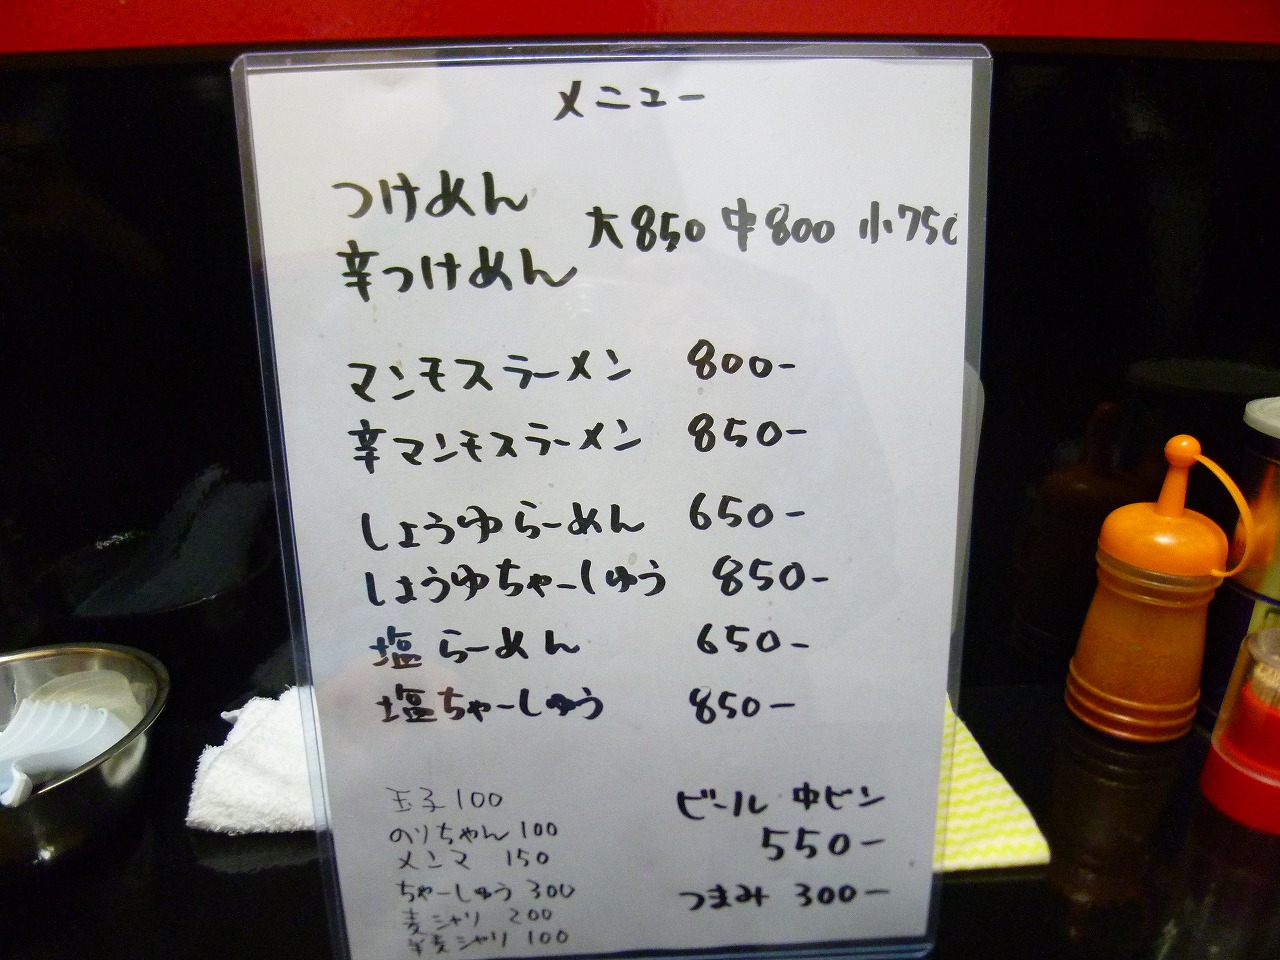 メニュー
つけめん
辛つけめん
大850 中800 小750
マンモスラーメン 800-
辛マンモスラーメン 850-
しょうゆらーめん 650-
しょうゆちゃーしゅう 850-
塩らーめん 650-
塩ちゃーしゅう 850-
玉子 100
のりちゃん 100
メンマ 150
ちゃーしゅう 300
麦シャリ 200
半麦シャリ 100
ビール 中ビン
550-
つまみ 300-